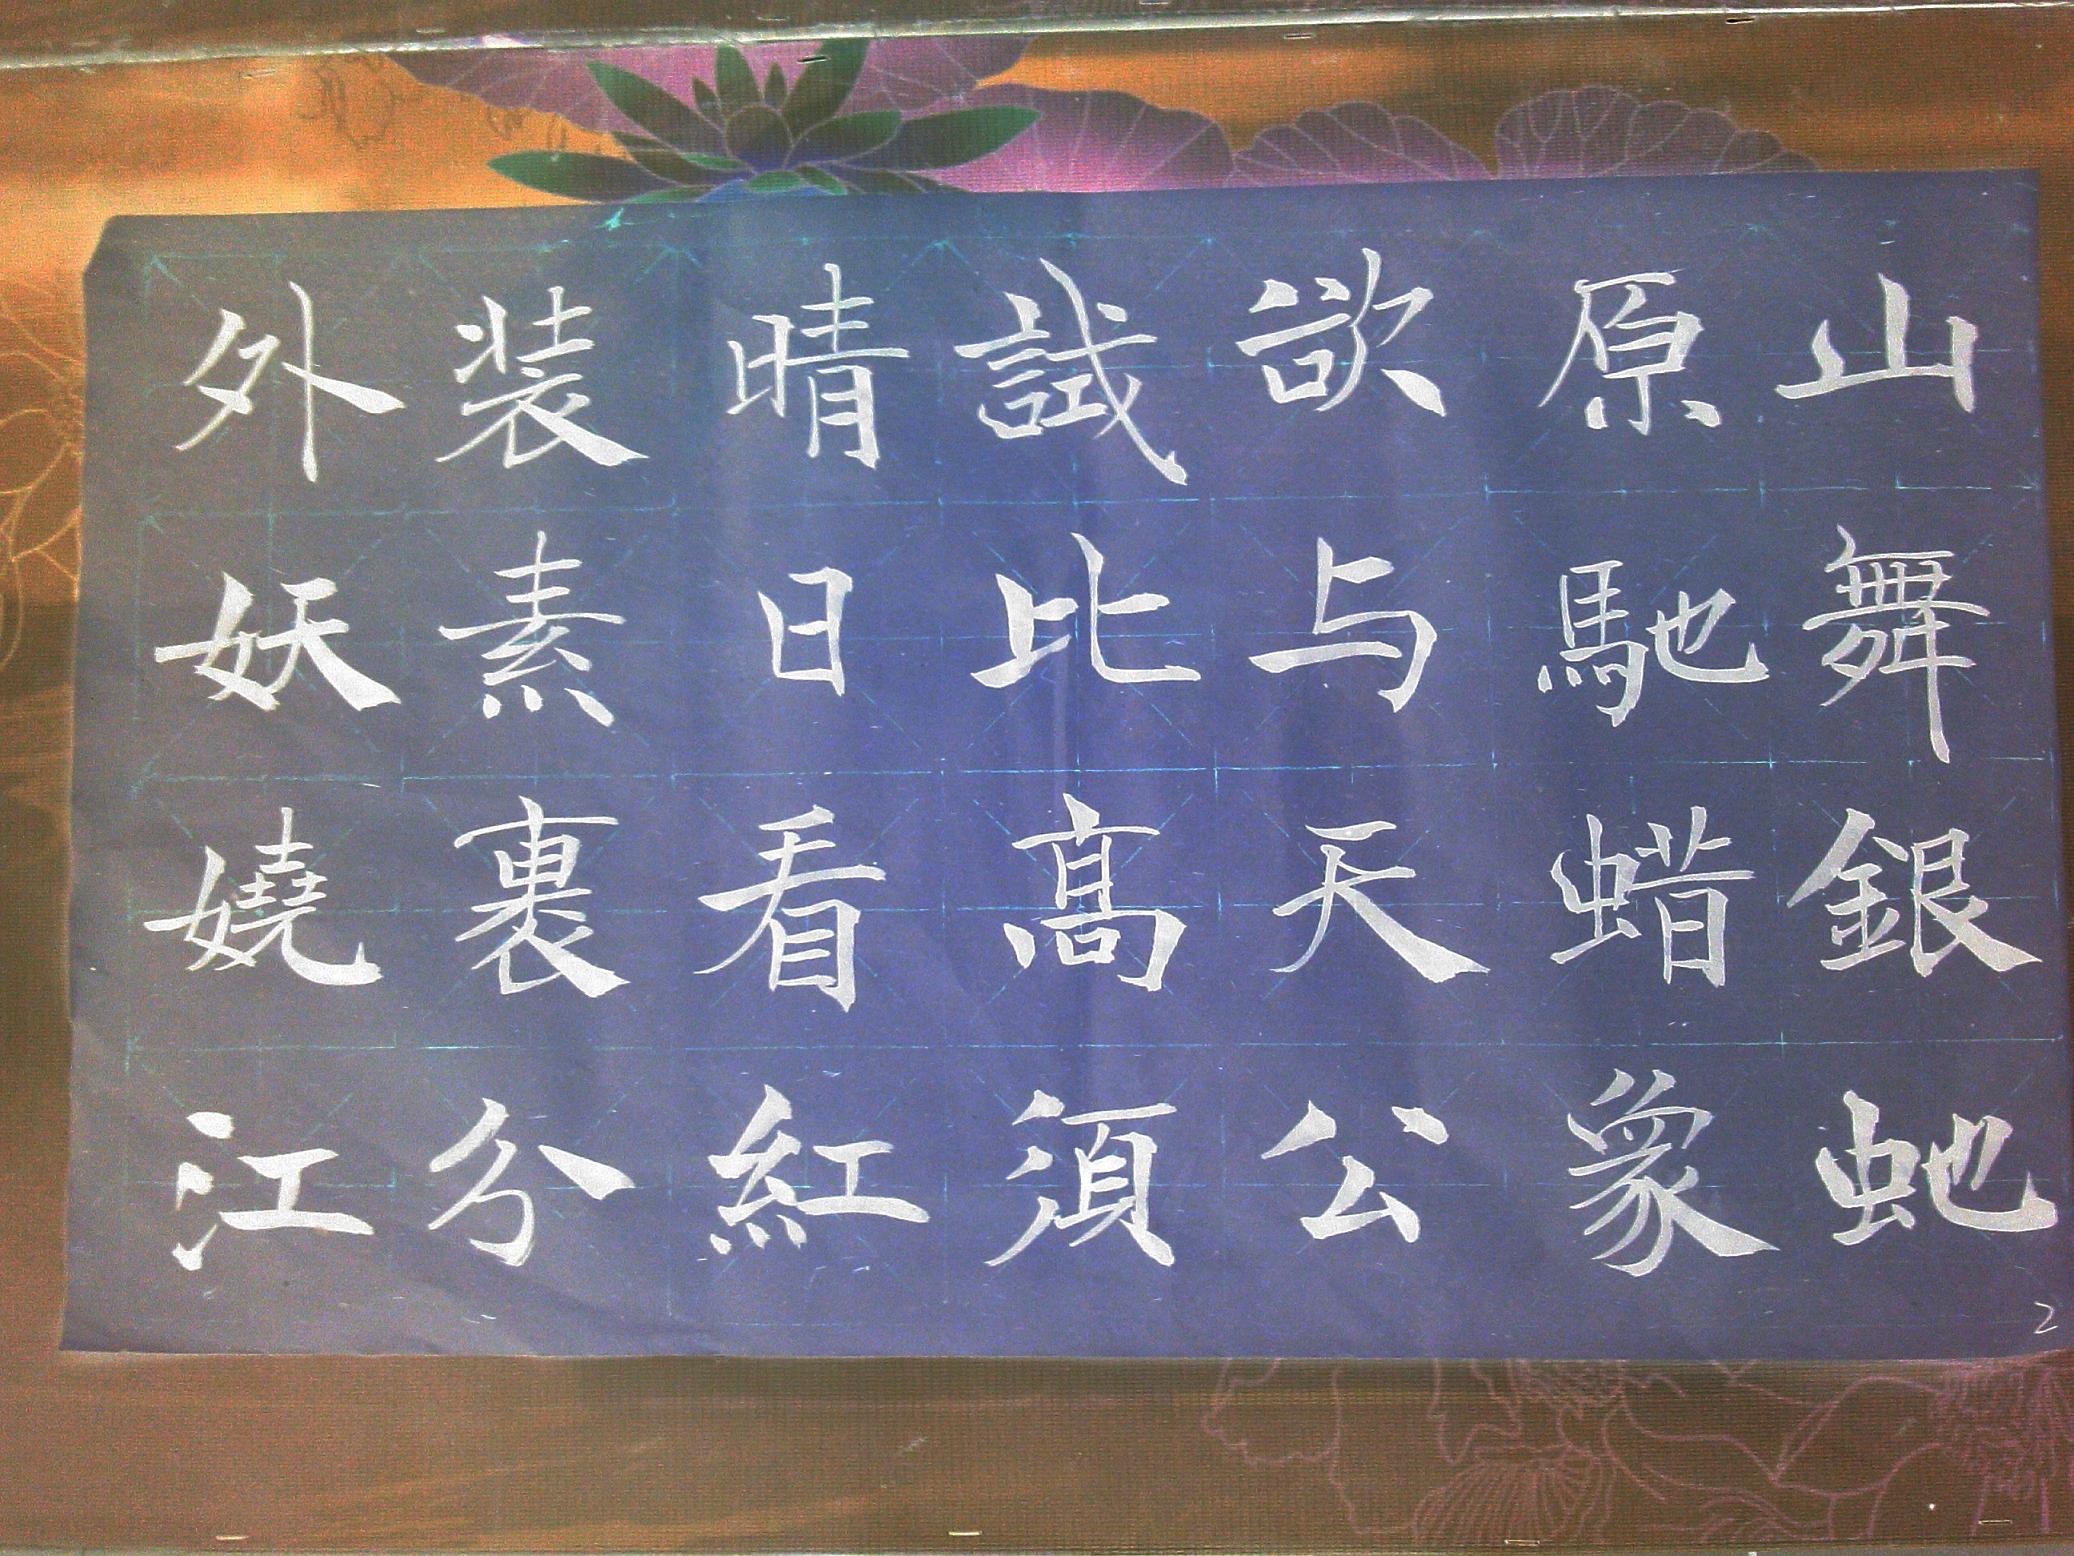 山舞銀虵
原馳蜡象
欲与天公
試比髙須
晴日看紅
装素裹分
外妖嬈江
2